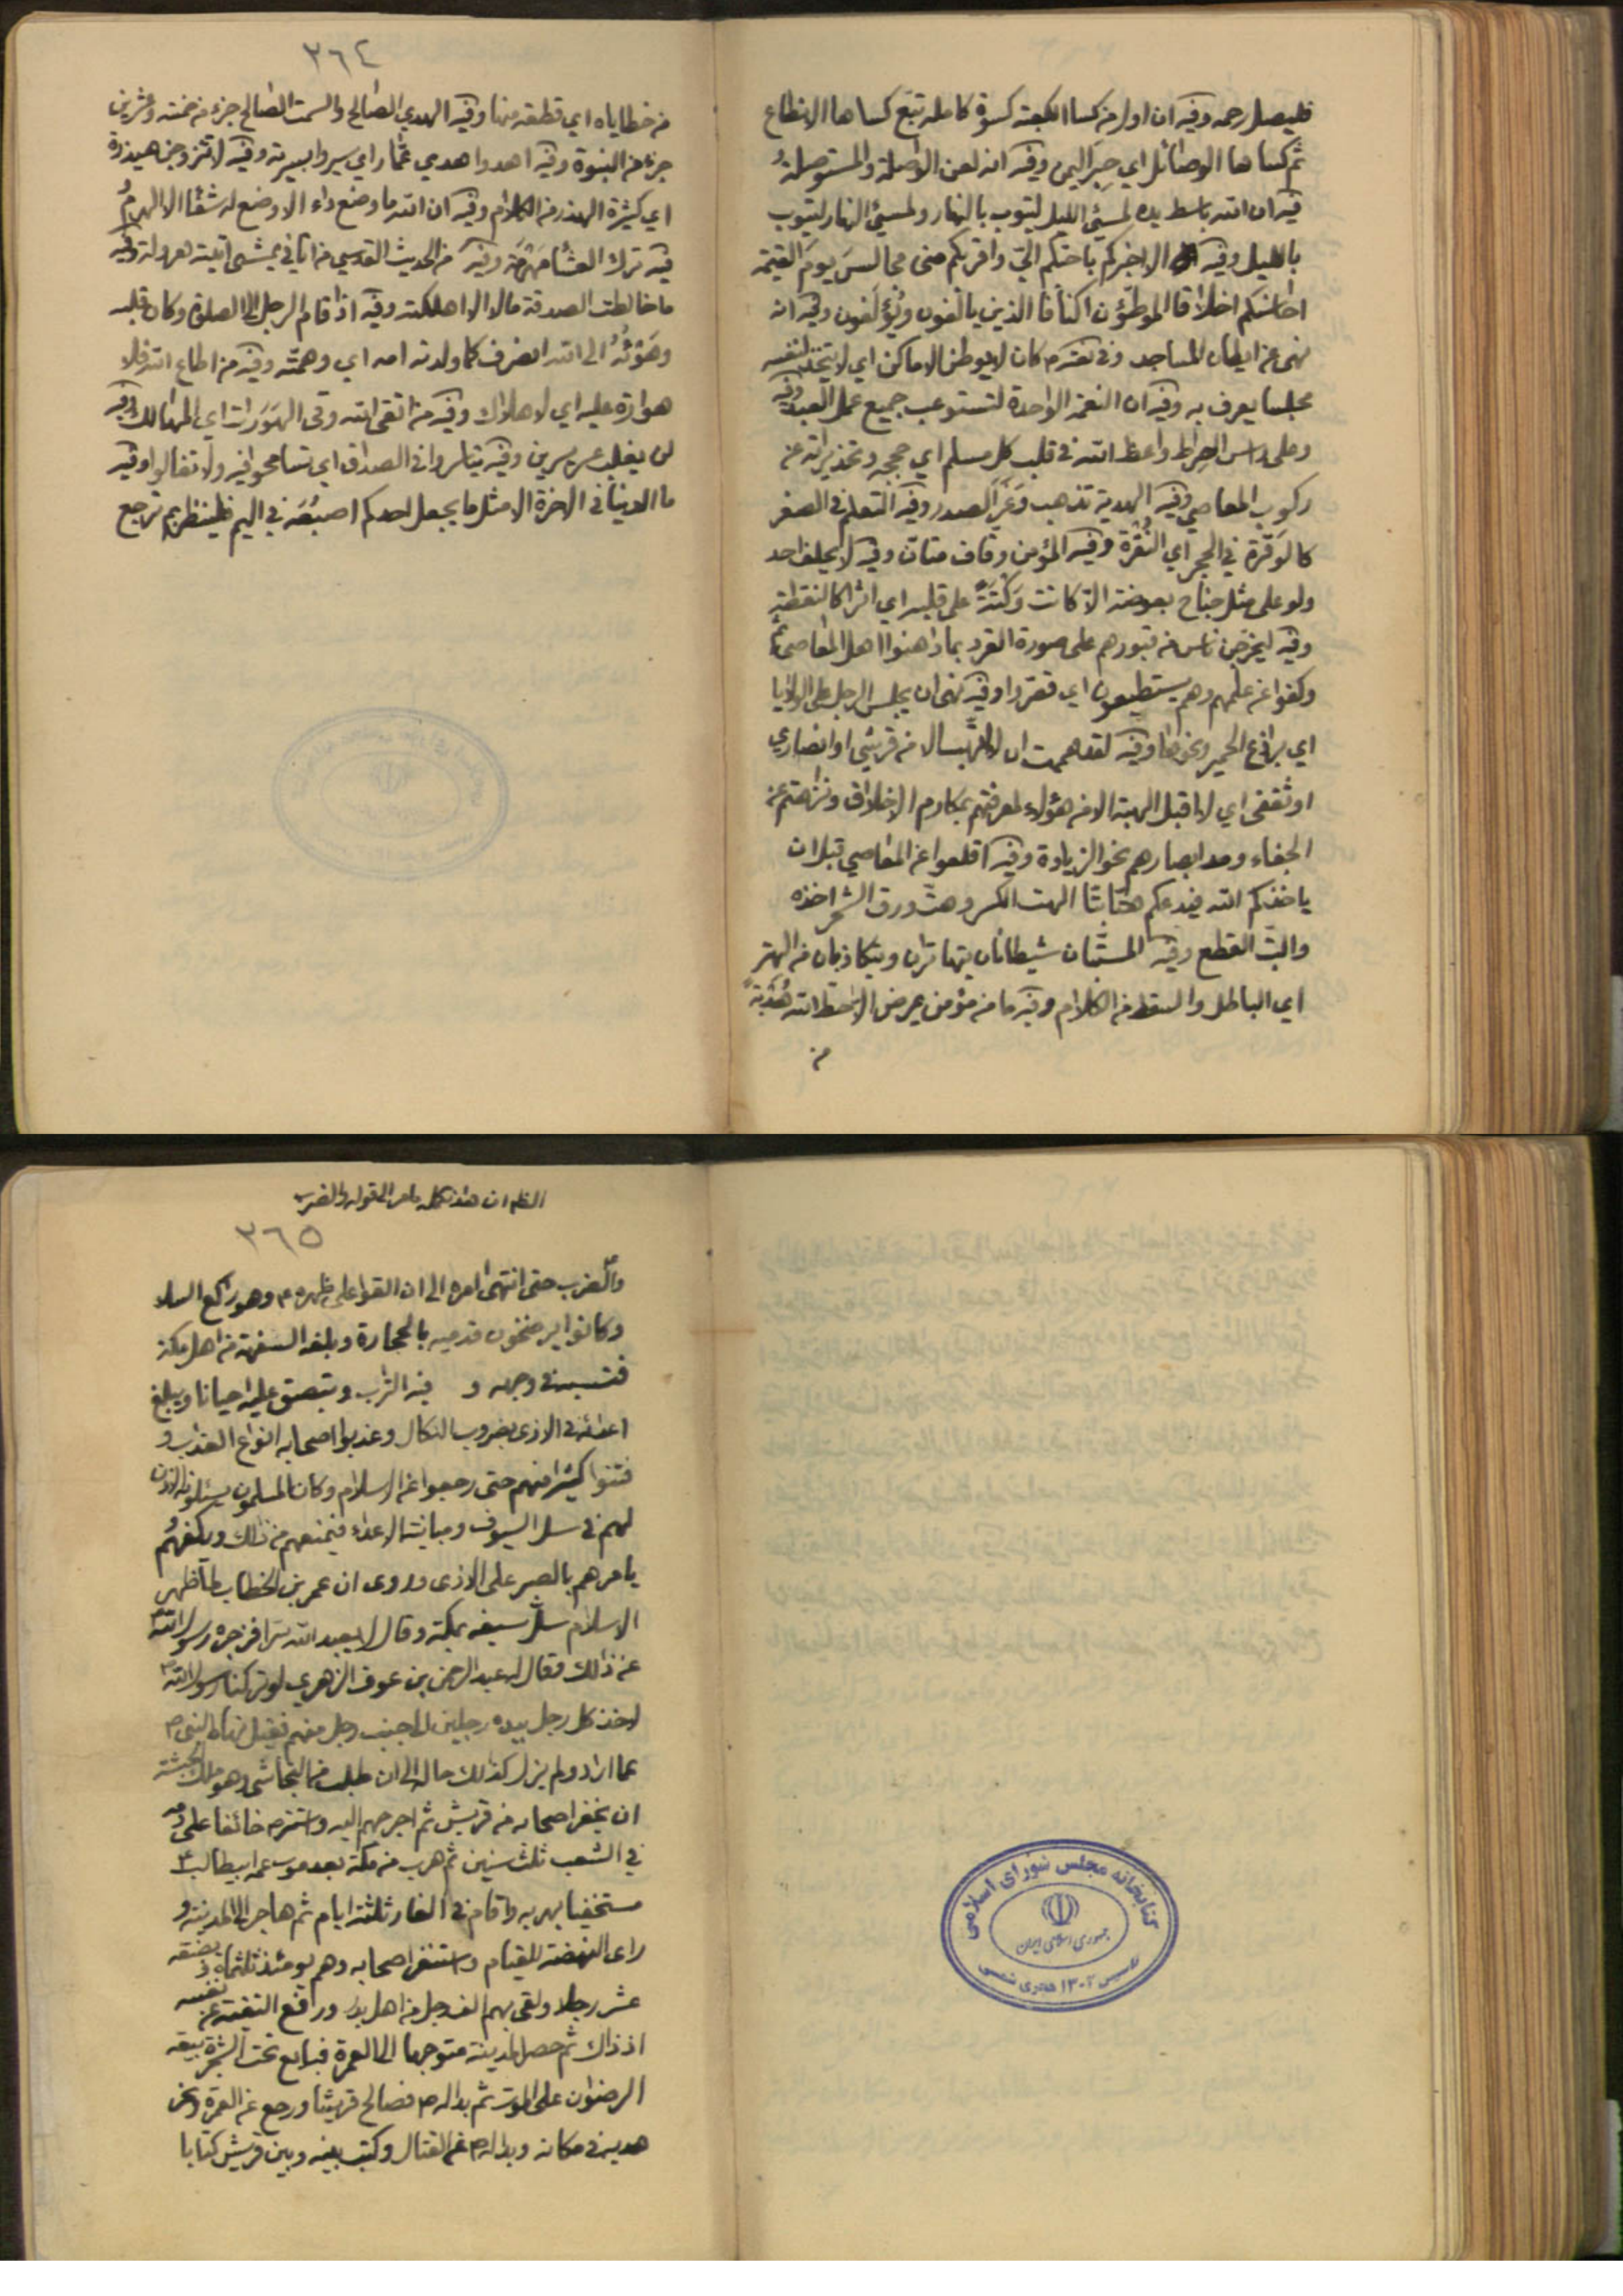 فليصل رحمه وفيه ان اول من كسا الكعبة كسوة كاملة تبع كساها الانطاع
ثم كساها الوصائل اي حبر اليمن وفيه انه لعن الواصلة والمستوصلة و
فيه ان الله باسط يده لمسئ الليل ليتوب بالنهار ولمسئ النهار ليتوب
بالليل وفيه الا اخبركم باحبكم الي واقربكم مني مجالس يوم القيمة
احاسنكم اخلاقا الموطئون اكنافا الذين يألفون ويؤلفون وفيه انه
نهى عن ايطان المساجد وفي كان لا يوطن الاماكن اي لا يتخذ لنفسه
مجلسا يعرف به وفيه ان النعمة الواحدة لتستوعب جميع عمل العبد وفيه
وعلى راس الصراط واعظ الله في قلب كل مسلم اي حججه وتحذيراته عن
ركوب المعاصي وفيه الهدية تذهب وغر الصدر وفيه التعلم في الصغر
كالوقرة في الحجر اي النقرة وفيه المؤمن وقاف متان وفيه لا يحلف احد
ولو على مثل جناح بعوضة الا كانت وكتة على قلبه اي اثرا كالنقطة
وفيه ليخرجن ناس من قبورهم على صورة القرد بما داهنوا اهل المعاصي ثم
وكفوا عن علمهم وهم يستطيعون اي قصروا وفيه نهى ان يجلس الرجل على الولايا
اي براذع الحمير ونحوها وفيه لقد هممت ان لا اتهب الا من قرشي او انصاري
او ثقفي اي لا اقبل الهبة الا من هؤلاء لمعرفتهم بمكارم الاخلاق ونزاهتهم عن
الجفاء ومد ابصارهم نحو الزيادة وفيه اقلعوا عن المعاصي قبل ان
ياخذكم الله فيدعكم هتا بتا الهت الكسر وهت ورق الشجر اخذه
والبت القطع وفيه المستبان شيطانان يتهاتران ويتكاذبان من الهتر
اي الباطل والسقط من الكلام وفيه ما من مؤمن يمرض الا حط الله هدبة
من
٣٦٤
من خطاياه اي قطعة منها وفيه الهدي الصالح والسمت الصالح جزء من خمسة وعشرين
جزء من النبوة وفيه اهدوا هدي عمار اي سيروا بسيرته وفيه لا تتزوجن هيذرة
اي كثيرة الهذر من الكلام وفيه ان الله ما وضع داء الا وضع له شفاء الا الهرم و
فيه ترك العشاء مهرمة وفيه من الحديث القدسي من اتاني يمشي اتيته هرولة وفيه
ما خالطت الصدقة مالا الا اهلكته وفيه اذا قام الرجل الى الصلوة وكان قلبه
وهوئه الى الله انصرف كما ولدته امه اي وهمته وفيه من اطاع الله فلا
هوارة عليه اي لا هلاك وفيه من اتقى الله وقي الهورات اي المهالك وفيه
لن يغلب عسر يسرين وفيه تياسروا في الصداق اي تسامحوا فيه ولا تغالوا وفيه
ما الدنيا في الاخرة الا مثل ما يجعل احدكم اصبعه في اليم فلينظر بم ترجع
هذه تكملة الى قوله والضرب
٣٦٥
والضرب حتى انتهى امره الى ان القوا على ظهره وهو راكع السلا
وكانوا يرضخون قدميه بالحجارة السفهة من اهل مكة
في وجهه و فيه التراب ويبصق عليه احيانا ويبلغ
اعدائه في الاذى بضروب النكال وعذبوا اصحابه انواع العذاب و
فتنوا كثيرا منهم حتى رجعوا عن الاسلام وكان المسلمون يسئلونه الاذن
لهم في سل السيوف ومباينة الاعداء فيمنعهم من ذلك ويكفهم و
يامرهم بالصبر على الاذى وروى ان عمر بن الخطاب لما اظهر
الاسلام سل سيفه بمكة وقال لا يعبد الله سرا فزجره رسول الله
عن ذلك فقال له عبد الرحمن بن عوف الزهري لو تركنا رسول الله
لاخذ كل رجل بيده رجلين الى جنب رجل منهم
عما اراد ولم يزل كذلك حاله الى ان طلب من النجاشي وهو ملك الحبشة
ان يخفر اصحابه من قريش ثم اخرجهم اليه واستتر خائفا على دمه
في الشعب ثلث سنين ثم هرب من مكة بعد موت عمه ابيطالب
مستخفيا بهربه واقام في الغار ثلثة ايام ثم هاجر الى المدينة و
راى النهضة للقيام واستنفر اصحابه وهم يومئذ ثلثماة وبضعة
عشر رجلا ولقى بهم الف رجل من اهل بدر ورفع التقية عن نفسه
اذ ذاك ثم حصل المدينة متوجها الى العمرة فبايع تحت الشجرة بيعة
الرضوان على الموت ثم بدا له فصالح قريشا ورجع عن العمرة ونحر
هديه في مكانه وبدا له عن القتال وكتب بينه وبين قريش كتابا
كتابخانه مجلس شورای اسلامی
جمهوری اسلامی ایران
تاسیس ۱۳۰۲ هجری شمسی